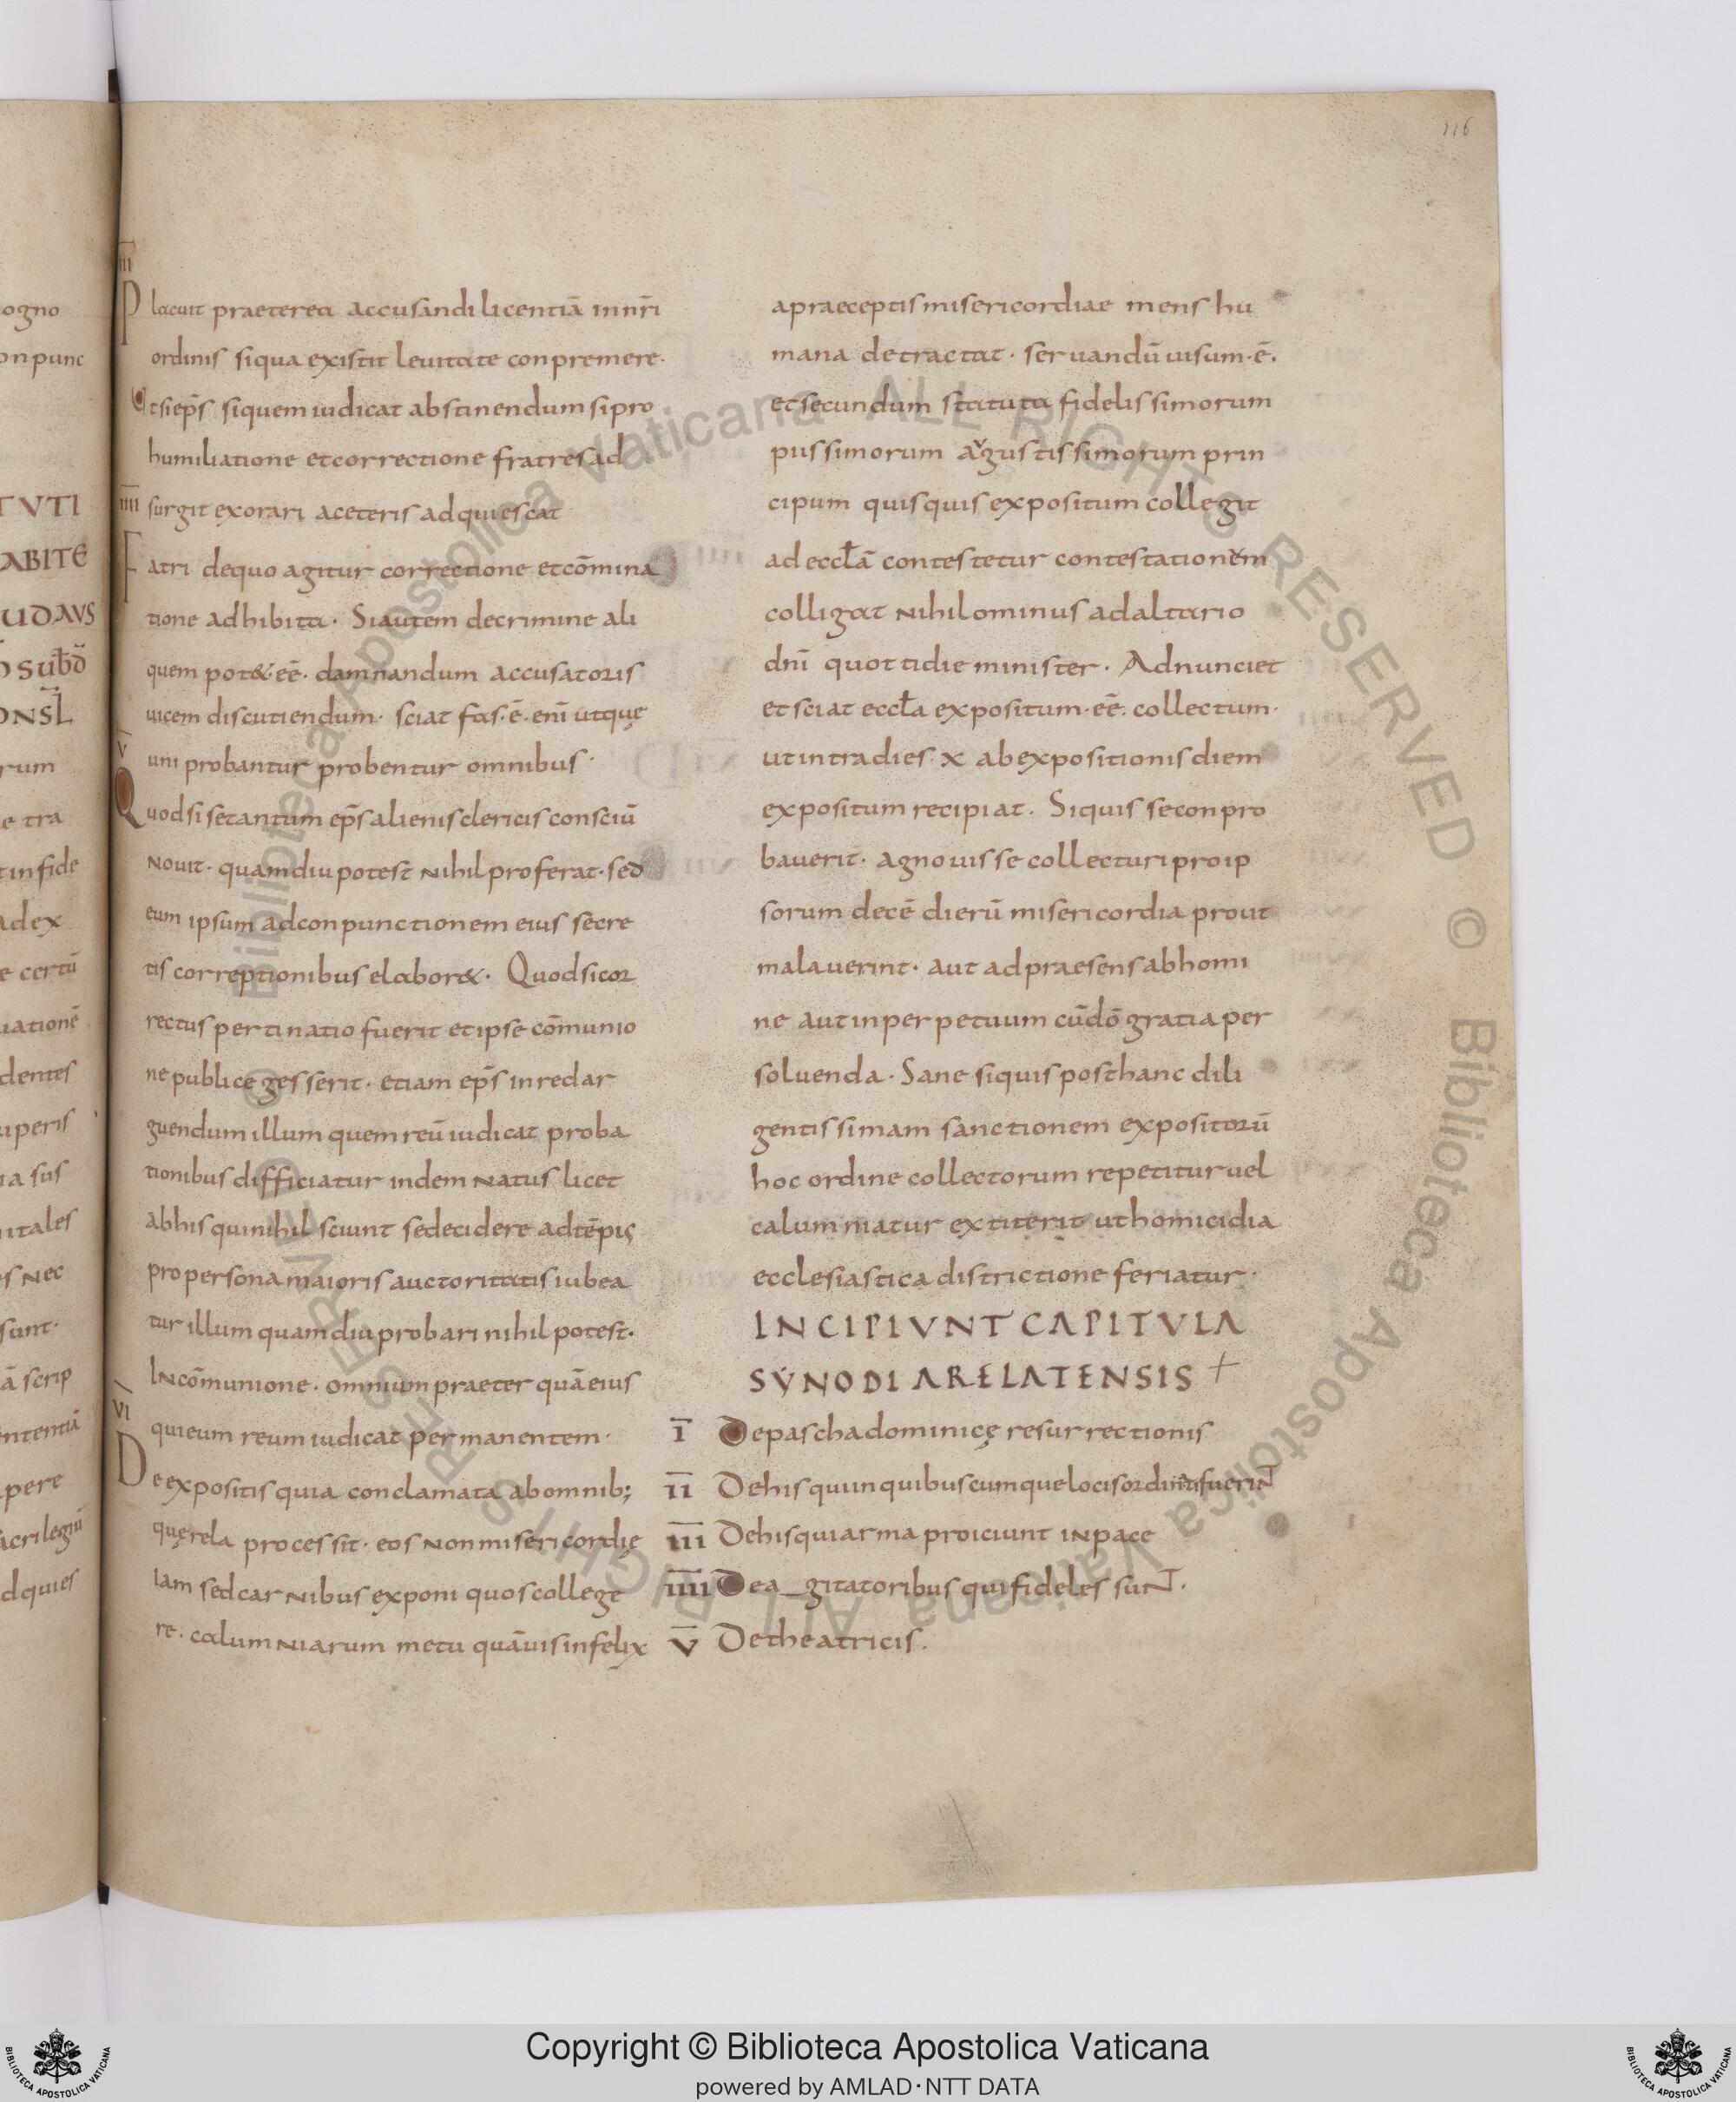 116
III
Placuit praeterea accusandi licentiā in nr̄i
ordinis siqua existit leuitate conpremere·
Et si ep̄s siquem iudicat abstinendum si pro
humiliatione et correctione fratres ad
IIII surgit exorari aceteris adquiescat
Fatri de quo agitur correctione et cōmina
tione adhibita· Si autem de crimine ali
quem pot&·eē· damnandum accusatoris
uicem discutiendum· sciat fas·ē·eni̅ ut quę
V uni probantur probentur omnibus·
Quod si se tantum ep̄s alieni sclericis consciū
nouit· quamdiu potest nihil proferat· sed
eum ipsum ad conpunctionem eius secre
tis correptionibus elabor&· Quod si cor
rectus pertinatio fuerit et ipse cōmunio
ne publice gesserit· etiam ep̄s in redar
guendum illum quem reū iudicat proba
tionibus difficiatur indemnatus licet
ab his qui nihil sciunt sedecidere ad tēpiς
pro persona maioris auctoritatis iubea
tur illum quamdiu probari nihil potest·
In cōmunione· omnium praeter quā eius
VI qui eum reum iudicat permanentem·
De expositis quia conclamata ab omnib;
quęrela processit· eos non misericordię
iam sed carnibus exponi quos college
re· calumniarum metu quāuis infelix
a praeceptis misericordiae mens hu
mana detractat· seruandū uisum·ē·
et secundum statuta fidelissimorum
pussimorum avgustissimorum prin
cipum quisquis expositum collegit
ad eccłā contestetur contestationem
colligat nihilominus ad altario
dnī quottidie minister· Adnunciet
et sciat eccła expositum·eē·collectum·
ut intra dies x ab expositionis diem
expositum recipiat· Siquis se conpro
bauerit· agnouisse collecturi pro ip
sorum decē dierū misericordia prout
malauerint· aut ad praesens ab homi
ne aut in perpetuum cū dō gratia per
soluenda· Sane siquis post hanc dili
gentissimam sanctionem expositorū
hoc ordine collectorum repetitur uel
calumniatur extiterit ut homicidia
ecclesiastica districtione feriatur·
INCIPIUNT CAPITULA
SYNODI ARELATENSIS +
I De pascha dominicę resurrectionis
II De his qui in quibuscumque locis ordinati fuerint
III De his qui arma proiciunt in pace
IIII De a_gitatoribus qui fideles sunt·
V De theatricis·
Copyright © Biblioteca Apostolica Vaticana
powered by AMLAD·NTT DATA